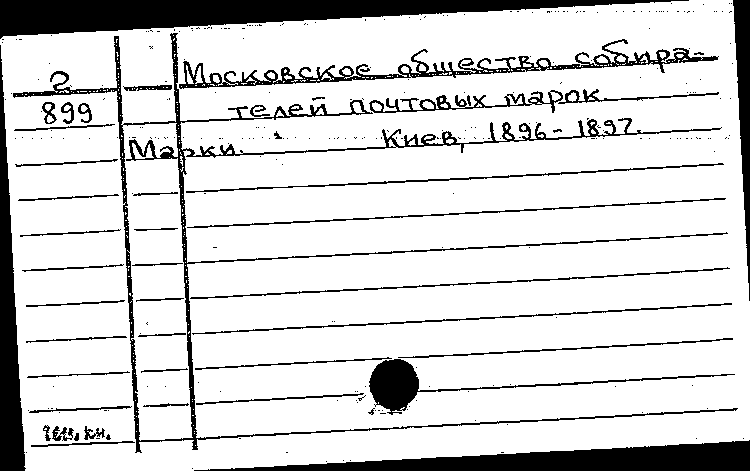 Г
899
Московское общество собира-
телей почтовых марок.
Марки. Киев, 1896-1897.
кн.